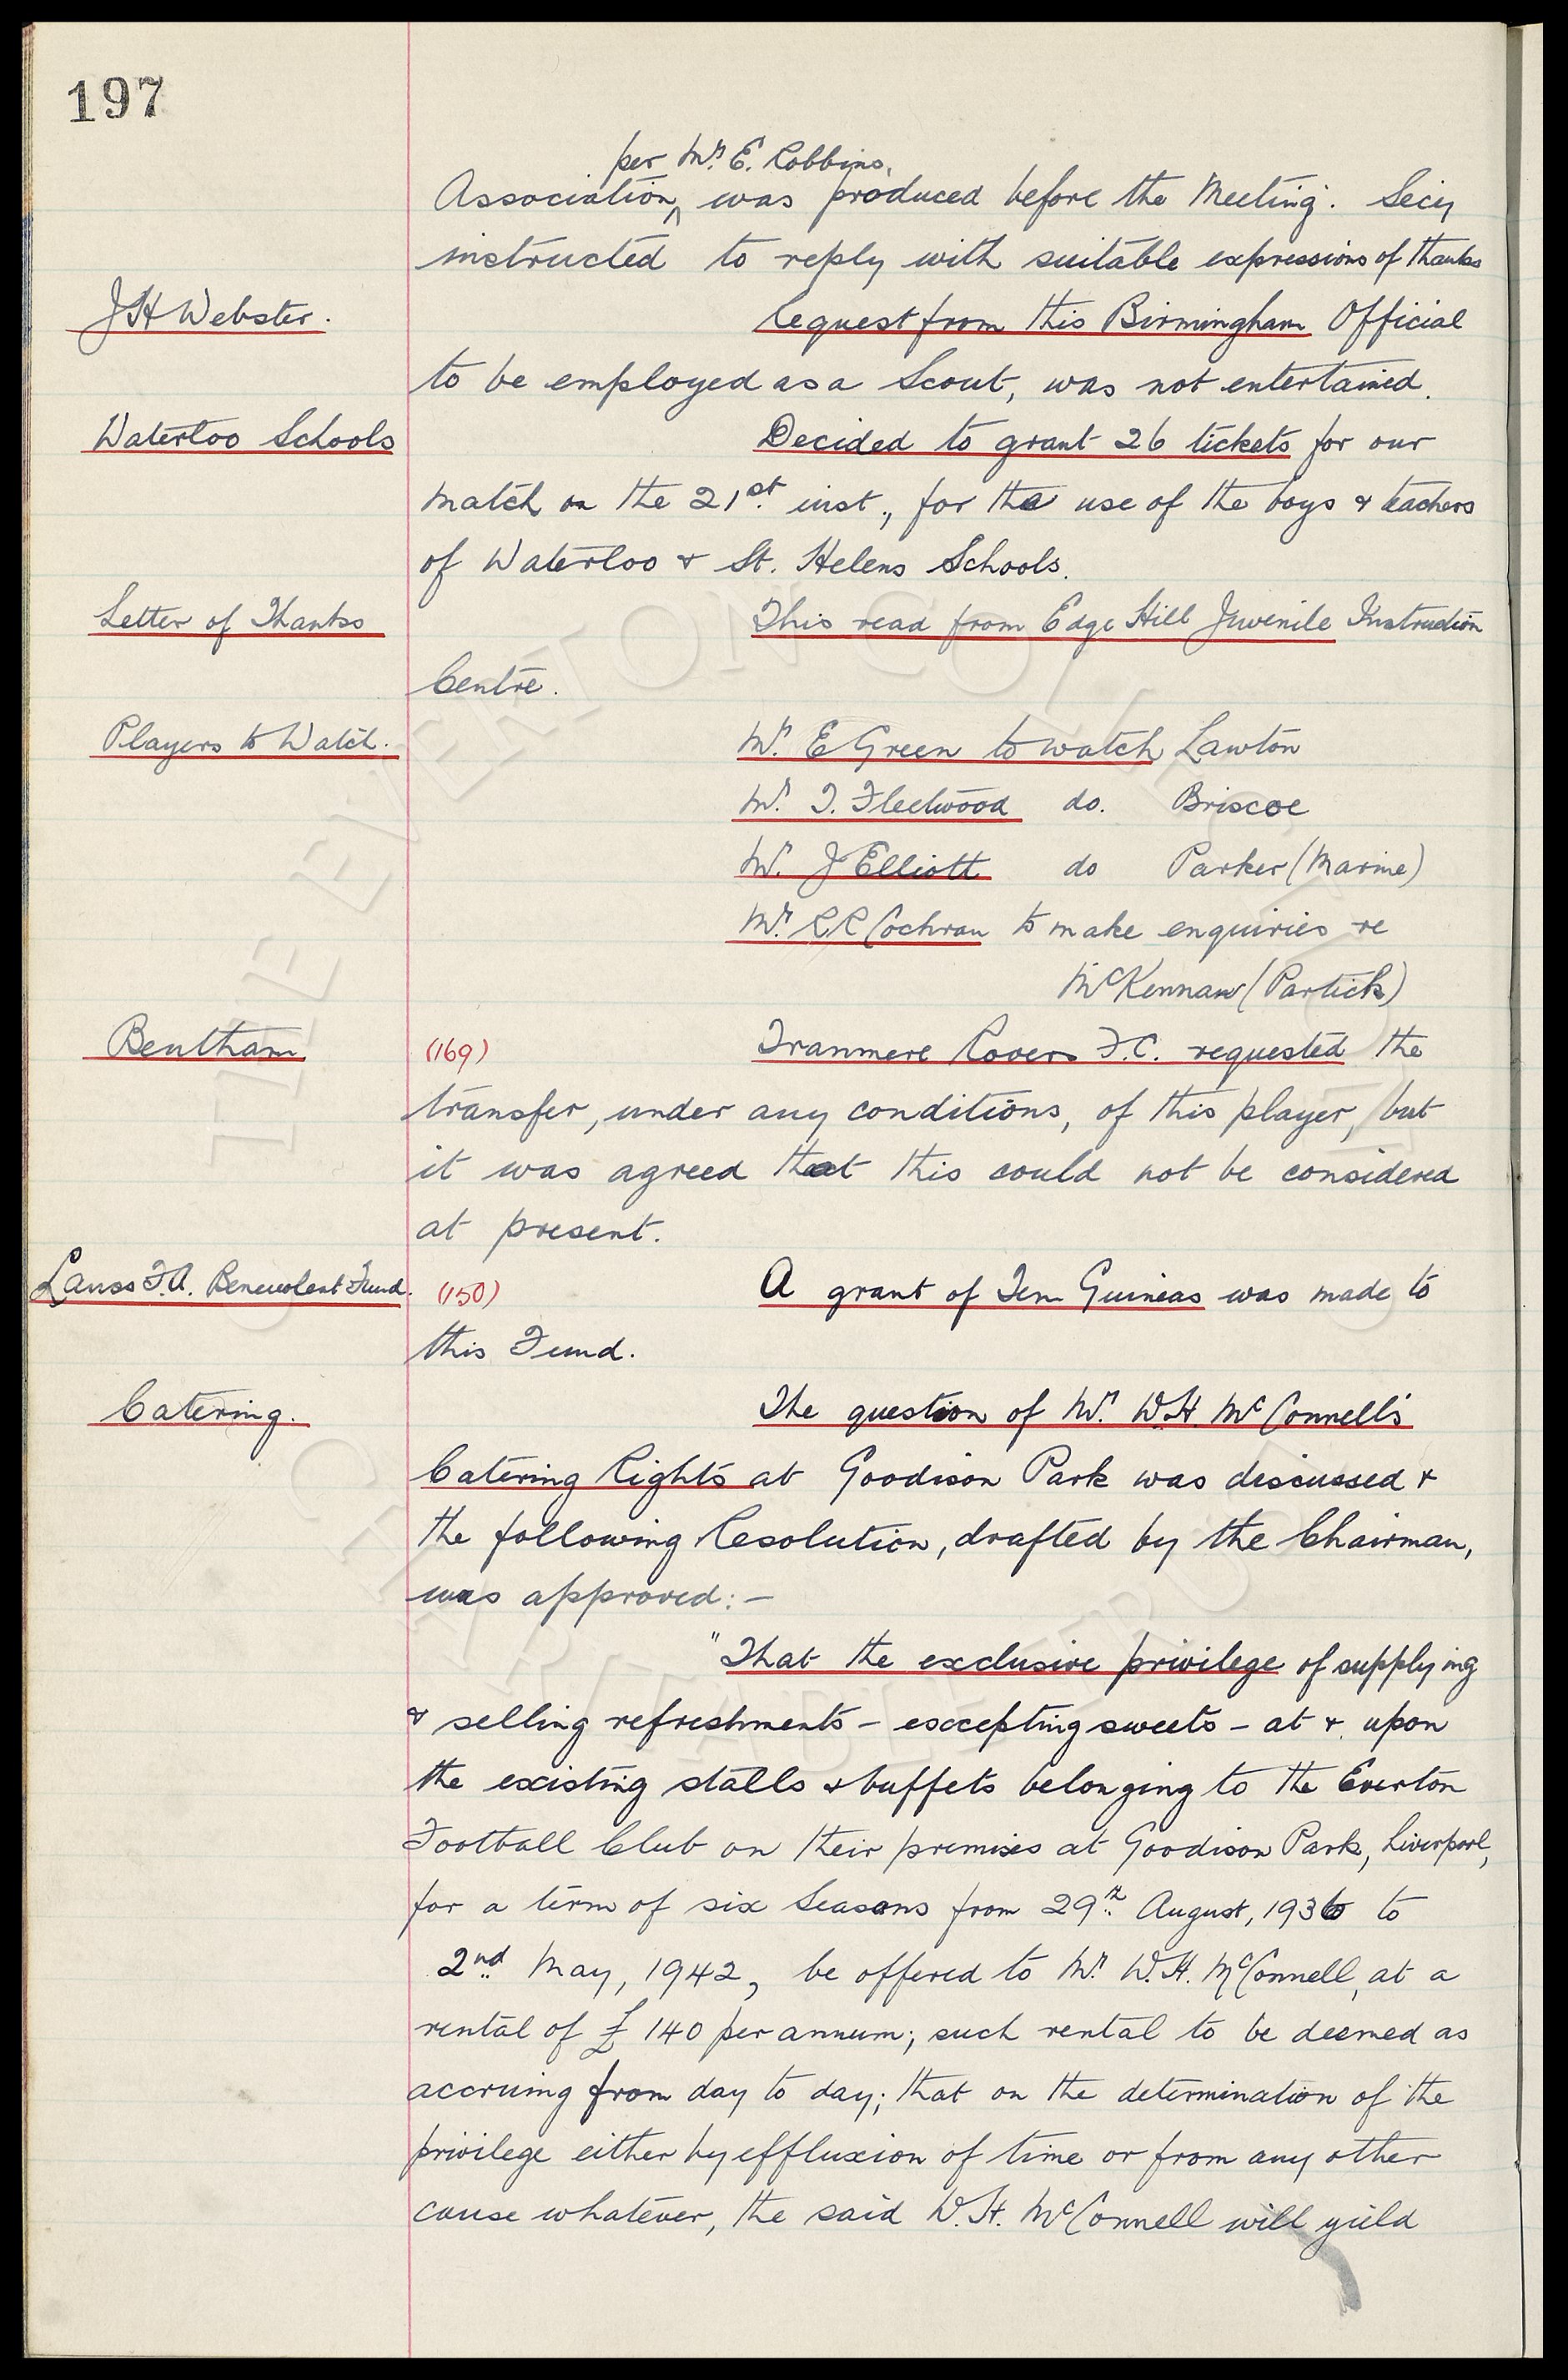 197
per Mr. E. Robbins,
Association, was produced before the Meeting. Secy
instructed to reply with suitable expressions of thanks
J H Webster. Request from this Birmingham Official
to be employed as a Scout, was not entertained.
Waterloo Schools Decided to grant 26 tickets for our
match on the 21st. inst., for the use of the boys & teachers
of Waterloo & St. Helens Schools.
Letter of Thanks This read from Edge Hill Juvenile Instruction
Centre.
Players to Watch. Mr. E Green to watch Lawton
Mr. T. Fleetwood do. Briscoe
Mr. J Elliott do Parker (Marine)
Mr. R R Cochran to make enquiries re
McKennan (Partick)
Bentham (169) Tranmere Rovers F.C. requested the
transfer, under any conditions, of this player, but
it was agreed that this could not be considered
at present.
Lancs F.A. Benevolent Fund. (150) A grant of Ten Guineas was made to
this Fund.
Catering. The question of Mr. W.H. McConnell's
Catering Rights at Goodison Park was discussed &
the following Resolution, drafted by the Chairman,
was approved:—
"That the exclusive privilege of supplying
& selling refreshments – excepting sweets – at & upon
the existing stalls & buffets belonging to the Everton
Football Club on their premises at Goodison Park, Liverpool,
for a term of six Seasons from 29th. August, 1936 to
2nd. May, 1942, be offered to Mr. W.H. McConnell, at a
rental of £140 per annum; such rental to be deemed as
accruing from day to day; that on the determination of the
privilege either by effluxion of time or from any other
cause whatever, the said W.H. McConnell will yield